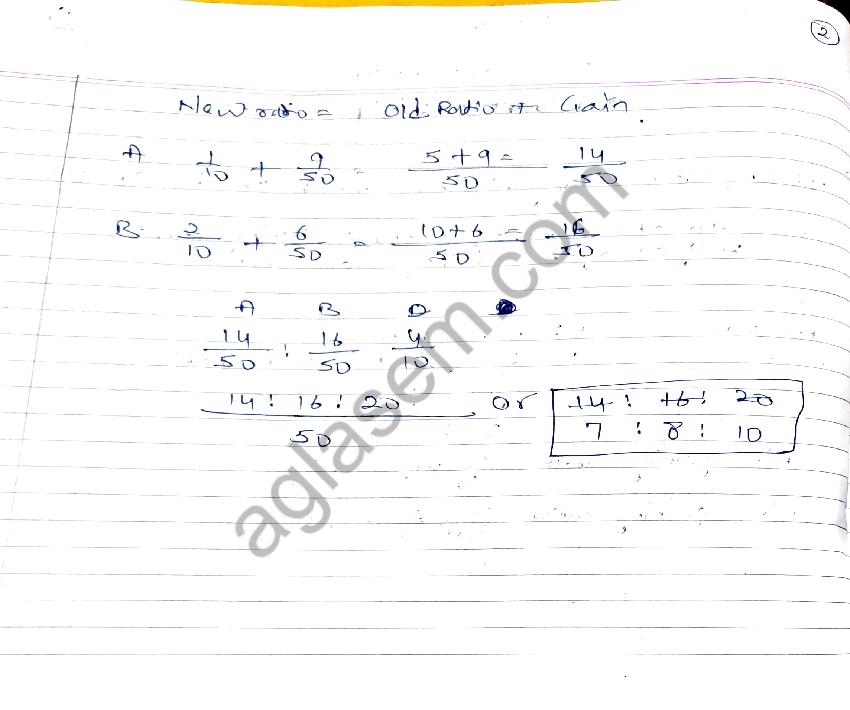 2
New ratio = Old Ratio + Gain.
A 1/10 + 9/50 = 5+9/50 = 14/50
B. 2/10 + 6/50 = 10+6/50 = 16/50
A B D
14/50 : 16/50 4/10
14 : 16 : 20 / 50 or 14 : 16 : 20
7 : 8 : 10
aglasem.com